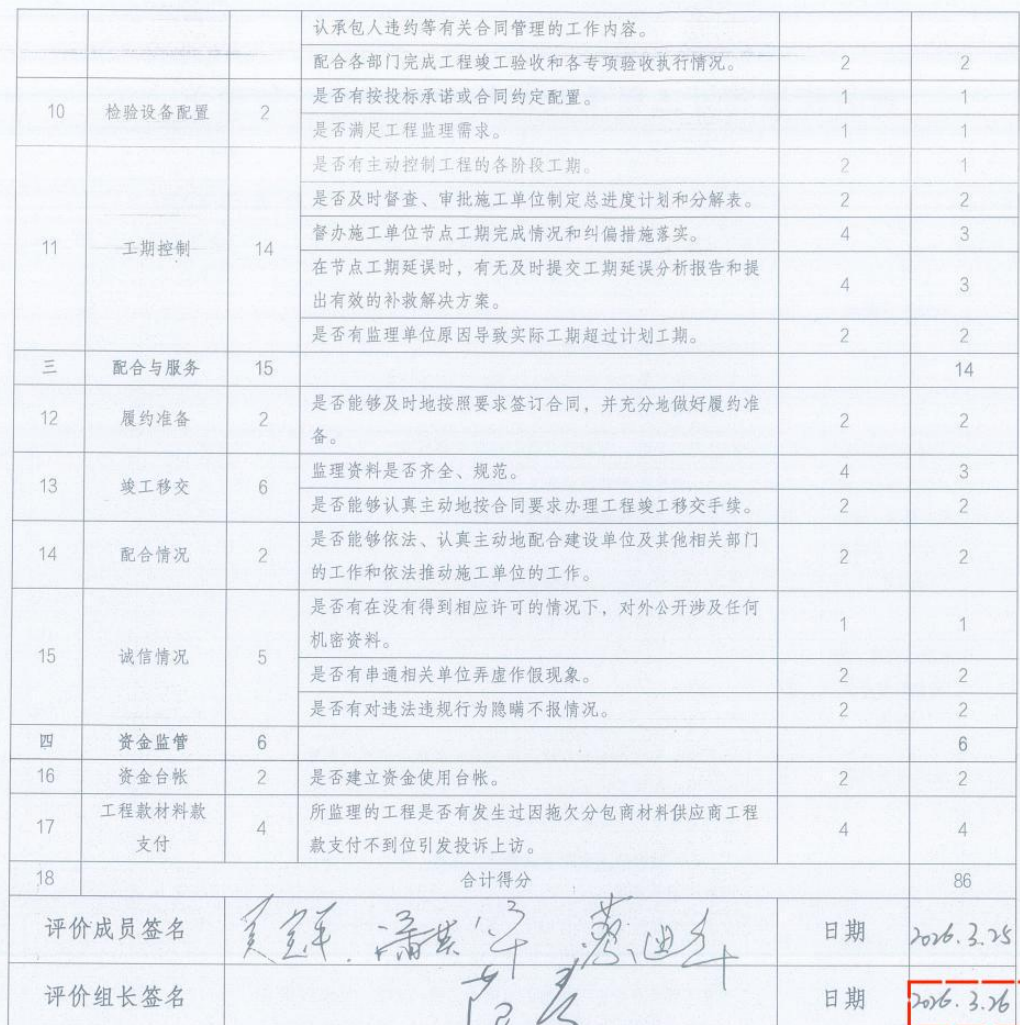 认承包人违约等有关合同管理的工作内容。
配合各部门完成工程竣工验收和各专项验收执行情况。 2 2
10 检验设备配置 2 是否有按投标承诺或合同约定配置。 1 1
是否满足工程监理需求。 1 1
是否有主动控制工程的各阶段工期。 2 1
是否及时督查、审批施工单位制定总进度计划和分解表。 2 2
11 工期控制 14 督办施工单位节点工期完成情况和纠偏措施落实。 4 3
在节点工期延误时，有无及时提交工期延误分析报告和提
出有效的补救解决方案。 4 3
是否有监理单位原因导致实际工期超过计划工期。 2 2
三 配合与服务 15 14
12 履约准备 2 是否能够及时地按照要求签订合同，并充分地做好履约准
备。 2 2
13 竣工移交 6 监理资料是否齐全、规范。 4 3
是否能够认真主动地按合同要求办理工程竣工移交手续。 2 2
14 配合情况 2 是否能够依法、认真主动地配合建设单位及其他相关部门
的工作和依法推动施工单位的工作。 2 2
是否有在没有得到相应许可的情况下，对外公开涉及任何
机密资料。 1 1
15 诚信情况 5 是否有串通相关单位弄虚作假现象。 2 2
是否有对违法违规行为隐瞒不报情况。 2 2
四 资金监管 6 6
16 资金台帐 2 是否建立资金使用台帐。 2 2
17 工程款材料款
支付 4 所监理的工程是否有发生过因拖欠分包商材料供应商工程
款支付不到位引发投诉上访。 4 4
18 合计得分 86
评价成员签名 日期 2026.3.25
评价组长签名 日期 2026.3.26